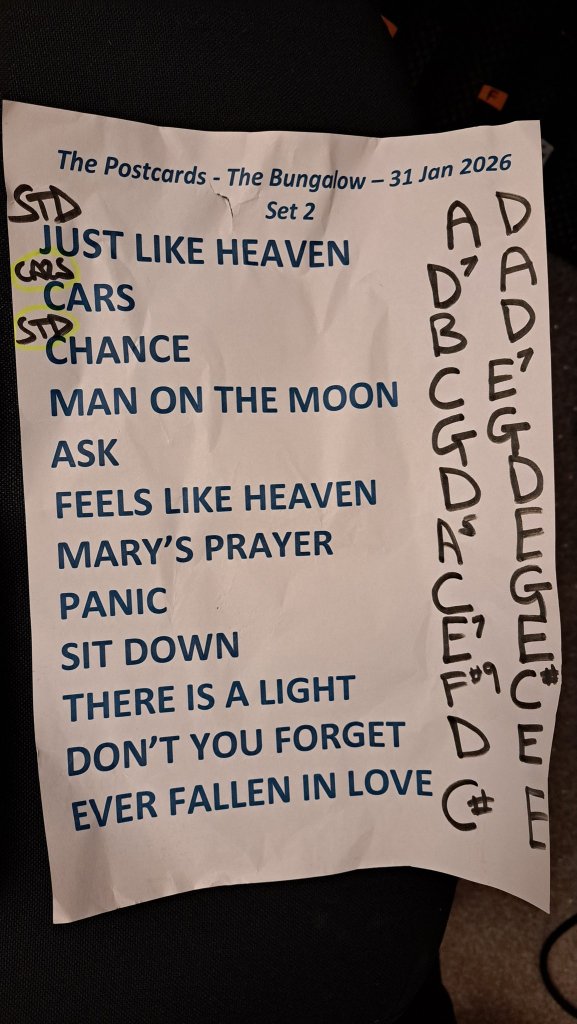 The Postcards - The Bungalow – 31 Jan 2026
Set 2
STD
JUST LIKE HEAVEN A D
CARS
CARS D7 A
STD
CHANCE B D
MAN ON THE MOON C E7
ASK G G
FEELS LIKE HEAVEN D D
MARY'S PRAYER E
PANIC C G
SIT DOWN E7 E
THERE IS A LIGHT F#9 C#
DON'T YOU FORGET D E
EVER FALLEN IN LOVE C# E
F